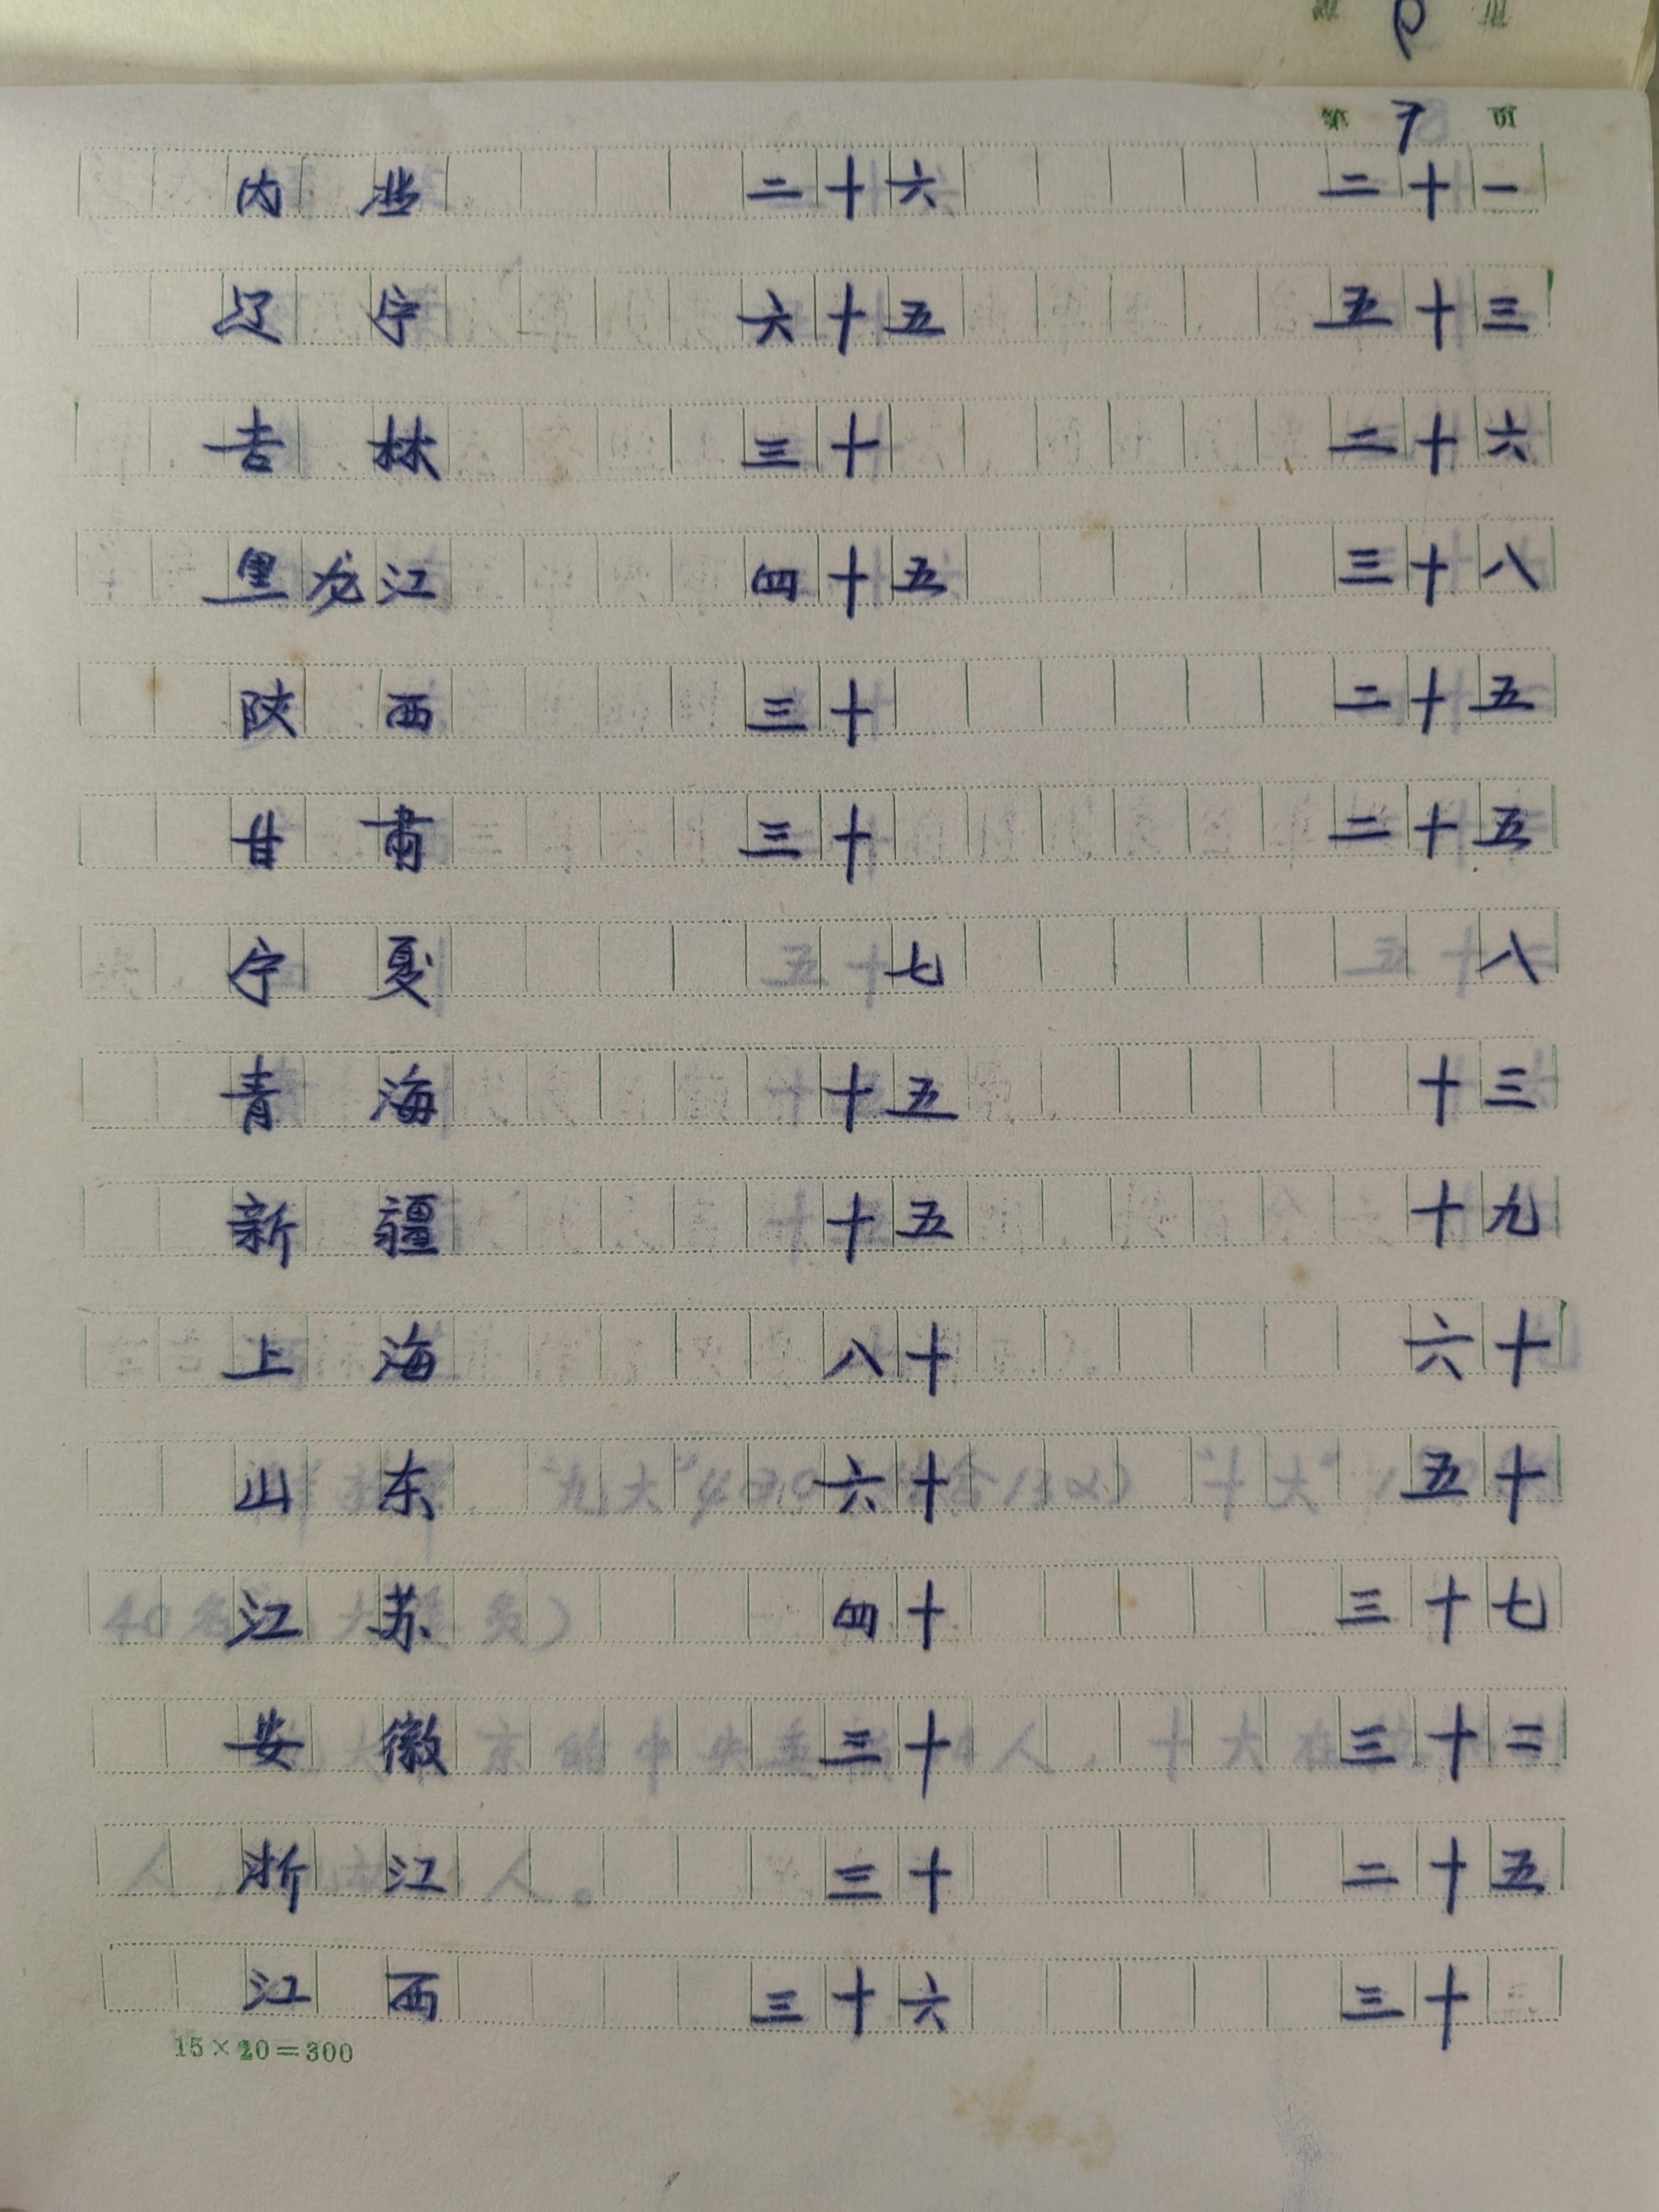 第 7 页
内 二十六 二十一
辽宁 六十五 五十三
吉林 三十 二十六
黑龙江 四十五 三十八
陕西 三十 二十五
甘肃 三十 二十五
宁夏 七 八
青海 十五 十三
新疆 十五 十九
上海 八十 六十
山东 六十 五十
江苏 四十 三十七
安徽 三十 三十二
浙江 三十 二十五
江西 三十六 三十
15×20=300